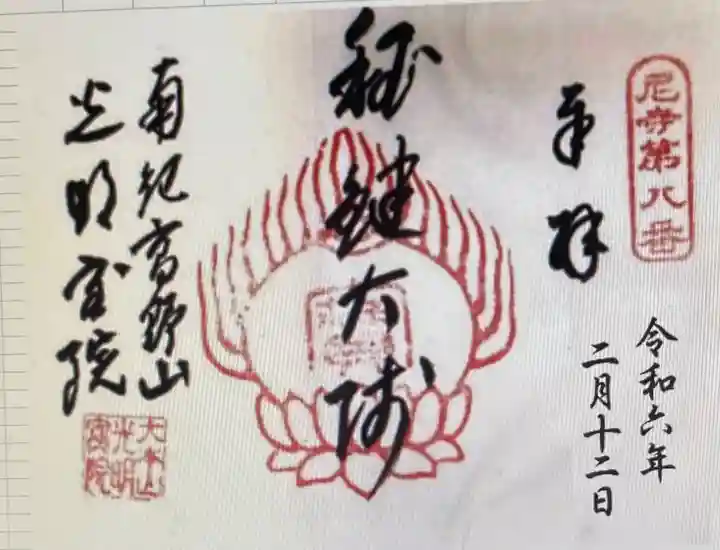 尼寺第八番
奉拝
令和六年
二月十二日
秘鍵大师
南紀高野山
光明宝院
大本山
光明
宝院